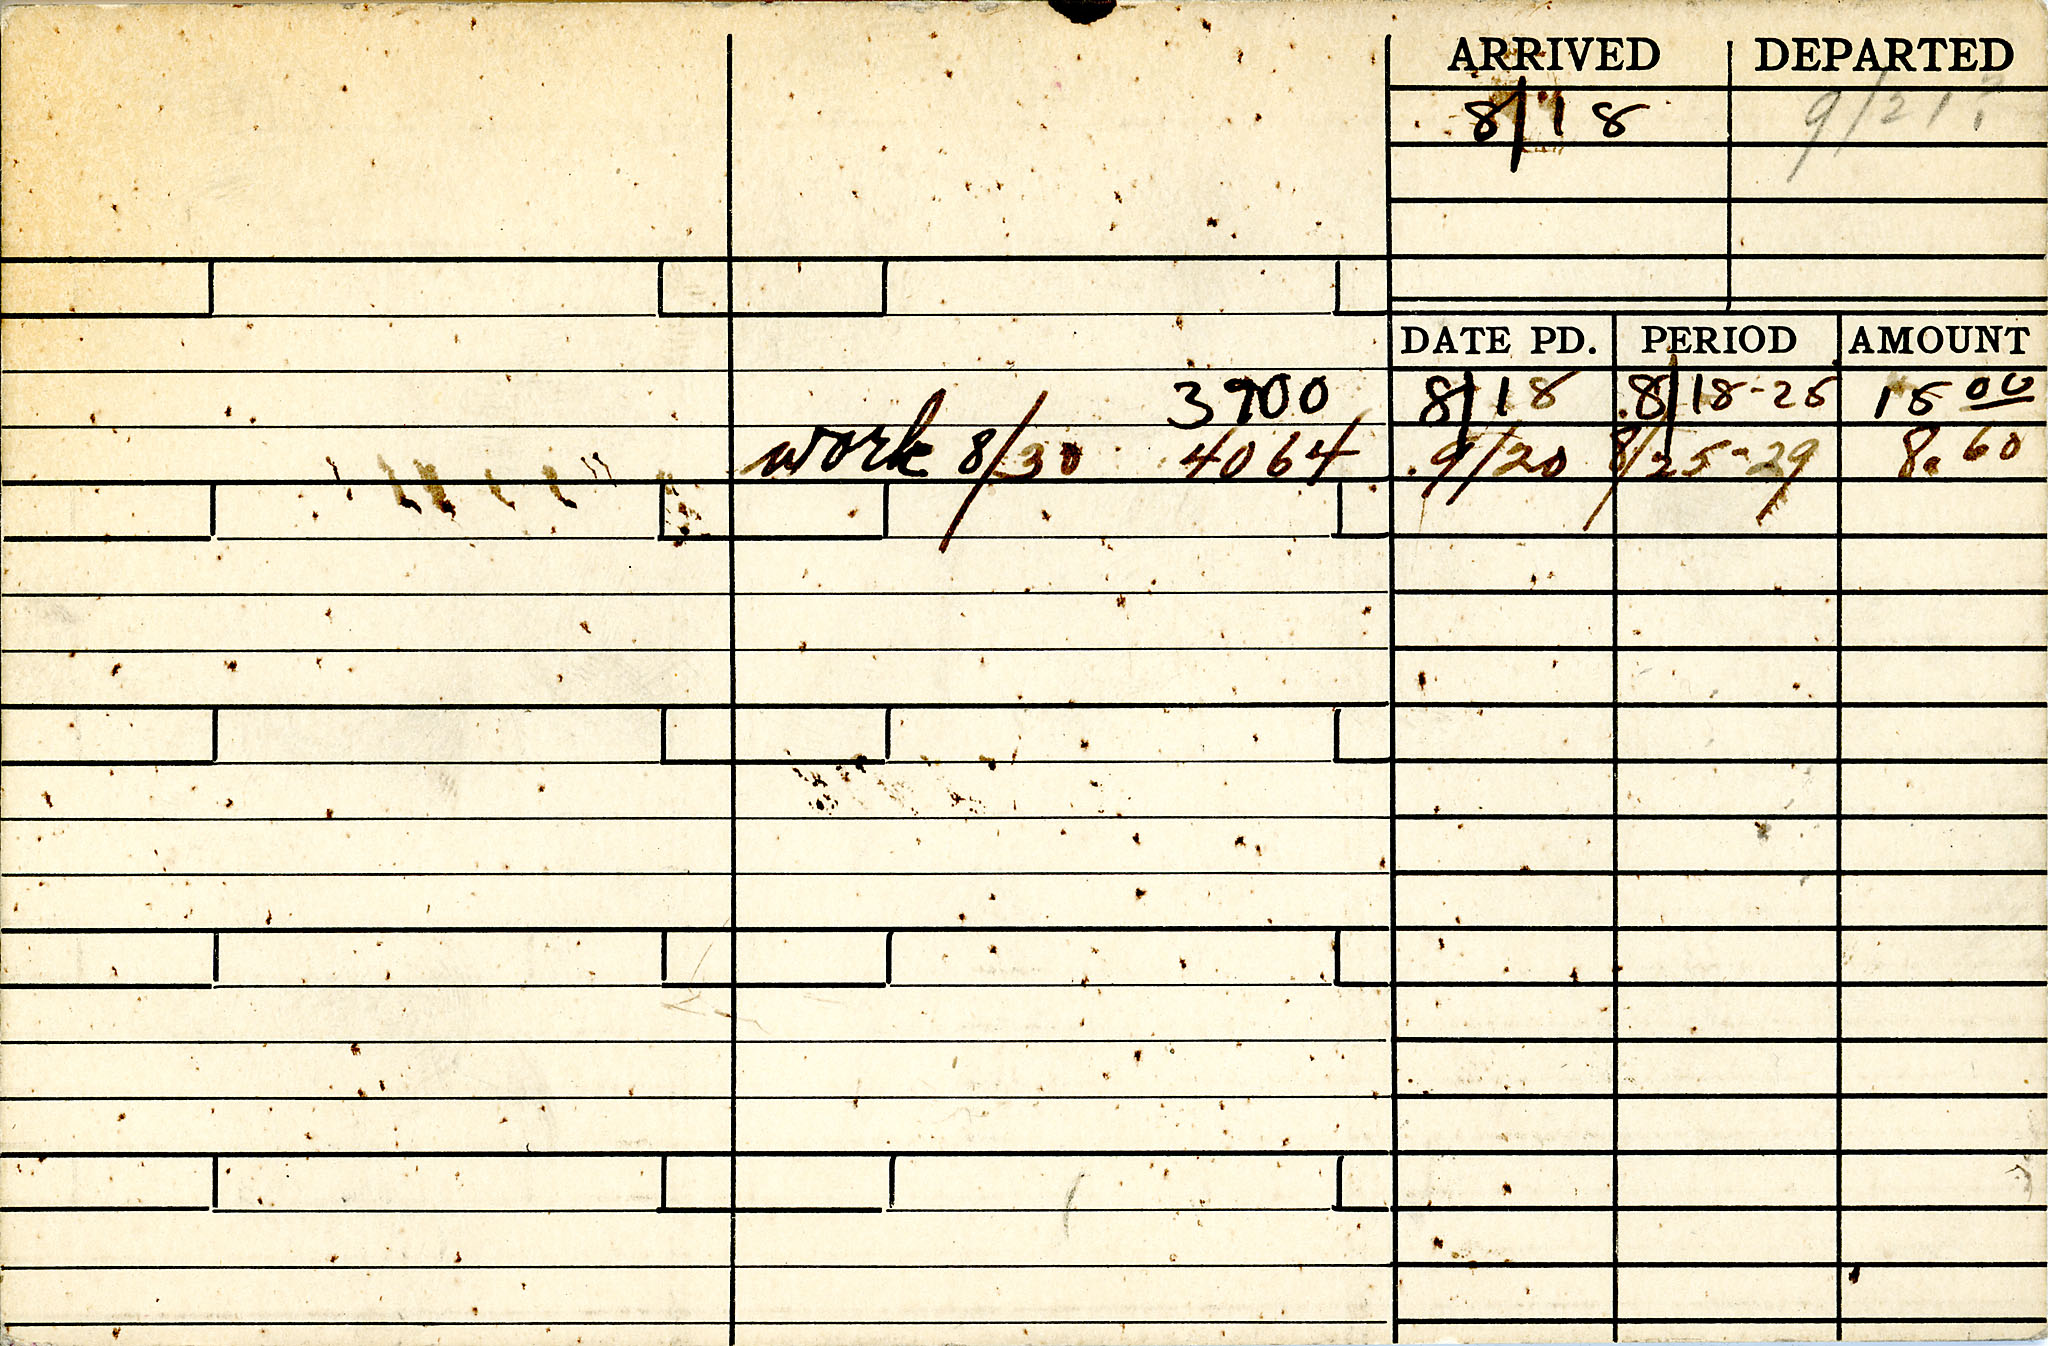 ARRIVED DEPARTED
8/18 9/21?
DATE PD. PERIOD AMOUNT
3900 8/18 8/18-25 15 00
work 8/30 4064 9/20 8/25-29 8.60